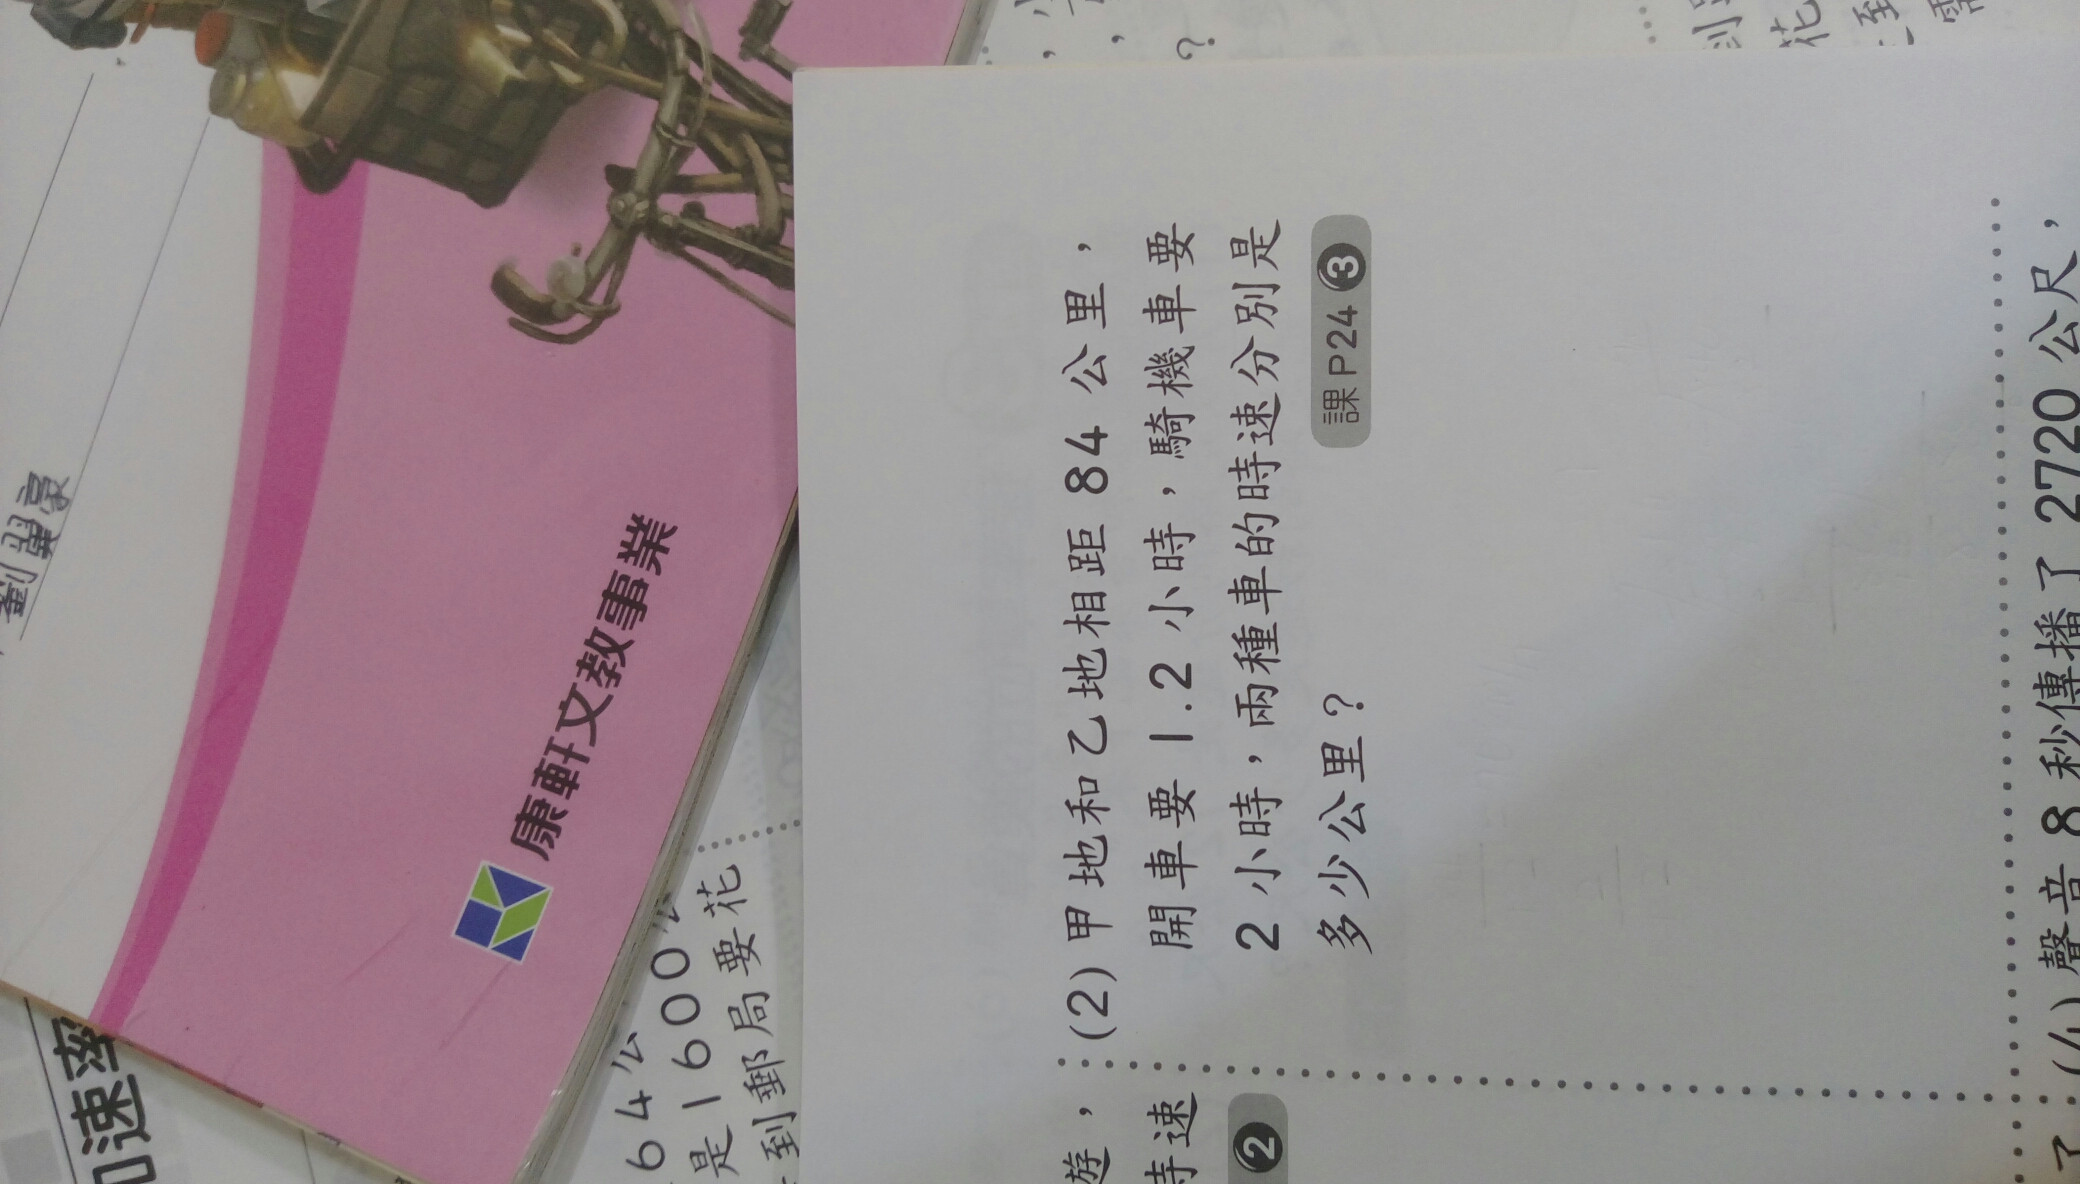 (2)甲地和乙地相距 84 公里，
開車要 1.2 小時，騎機車要
2 小時，兩種車的時速分別是
多少公里？
課 P24 3
(4)聲音 8 秒傳播了 2720 公尺，
遊，
時速
2
了
康軒文教事業
劉
速率
64 公
是 1600
到郵局要花
，
，
？
到
花
到
需